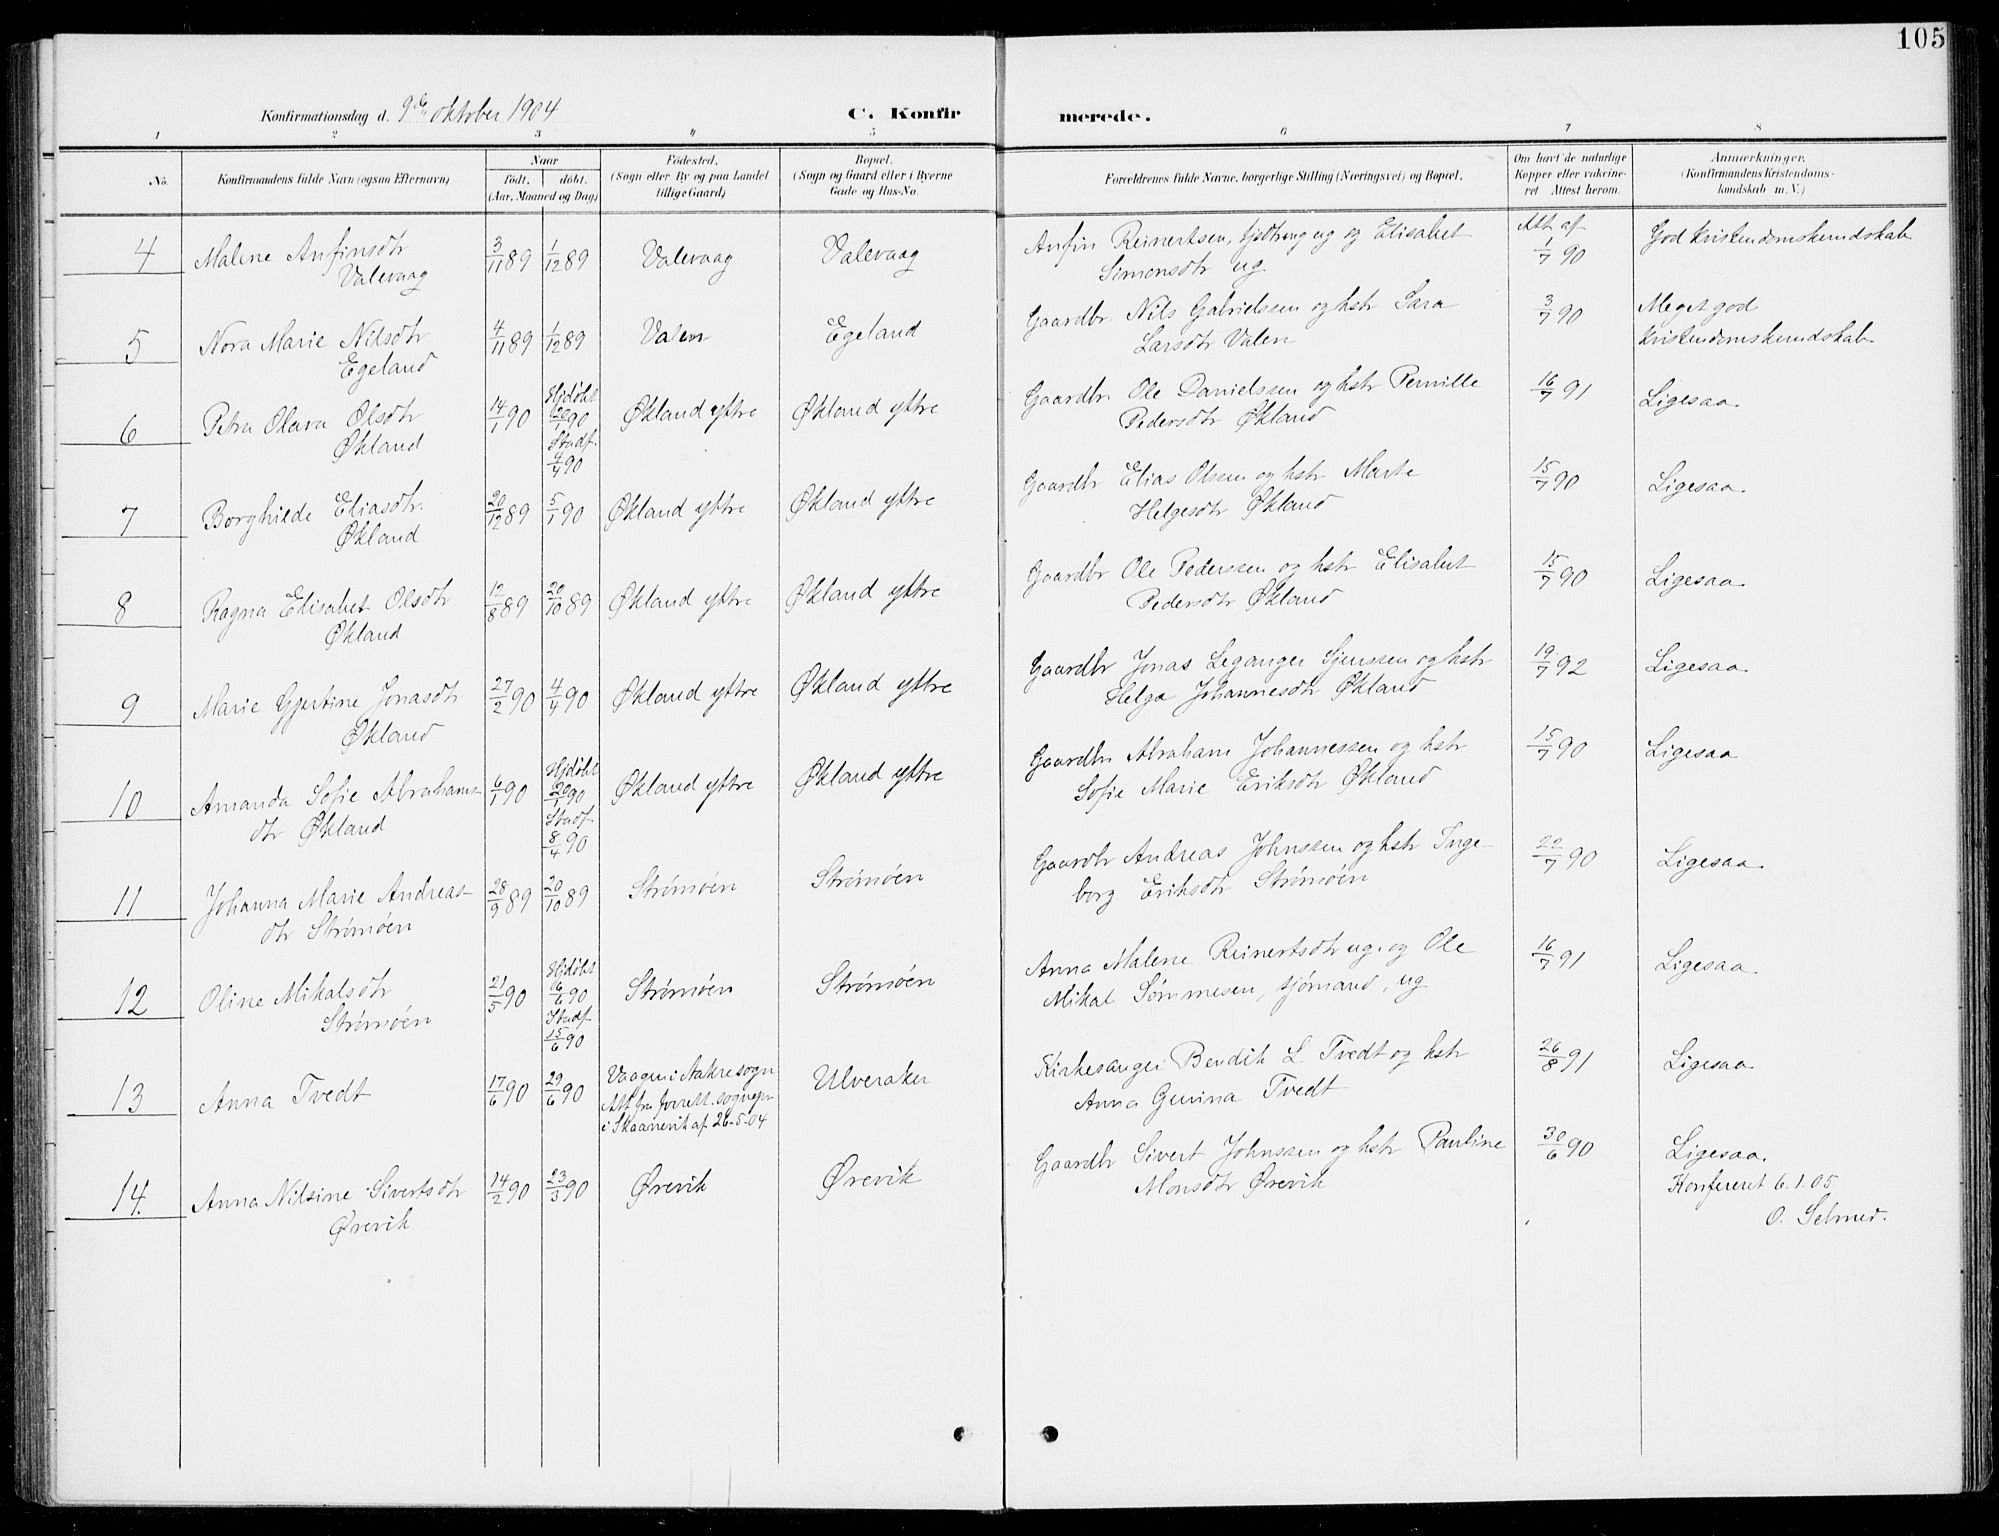 105
Konfirmationsdag d. 9de oktober 1904
C. Konfirmerede.
1 2 3 4 5 6 7 8
No.
Konfirmandens fulde Navn (ogsaa Efternavn)
Naar
født. døbt.
(Aar, Maaned og Dag)
Fødested.
(Sogn eller By og paa Landet
tillige Gaard)
Bopæl.
(Sogn og Gaard eller i Byerne
Gade og Hus-No.
Forældrenes fulde Navne, borgerlige Stilling (Næringsvei) og Bopæl.
Om havt de naturlige
Kopper eller vakcine-
ret Attest herom.
Anmærkninger.
(Konfirmandens Kristendoms-
kundskab m. V.)
4 Malene Anfinsdtr 3/11 89 1/12 89 Valevaag Valevaag Anfin Reinertsen, ug og Elisabet Att af 1/7 90 God Kristendomskundskab
Valevaag Simonsdtr ug
5 Nora Marie Nilsdtr 4/11 89 1/12 89 Valen Egeland Gaardbr Nils Gabrielssen og hstr Sara 3/7 90 Meget god
Egeland Larsdtr Valen Kristendomskundskab
6 Petra Olava Olsdtr 14/1 90 Hjdøbt 20/1 90 Stadf. 4/4 90 Økland yttre Økland yttre Gaardbr. Ole Danielssen og hstr Pernille 16/7 91 Ligesaa.
Økland Pedersdtr Økland
7 Borghilde Eliasdtr. 20/12 89 5/1 90 Økland yttre Økland yttre Gaardbr Elias Olssen og hstr Marte 15/7 90 Ligesaa.
Økland Helgesdtr Økland
8 Ragna Elisabet Olsdtr 12/8 89 20/10 89 Økland yttre Økland yttre Gaardbr Ole Pederssen og hstr Elisabet 15/7 90 Ligesaa.
Økland Pedersdtr Økland
9 Marie Gjertine Jonasdtr 27/2 90 4/4 90 Økland yttre Økland yttre Gaardbr Jonas Leganger Sjurssen og hstr 19/7 92 Ligesaa.
Økland Helga Johannesdtr Økland
10 Amanda Sofie Abrahams- 6/1 90 Hjdøbt 20/1 90 Stadf 8/4 90 Økland yttre Økland yttre Gaardbr Abraham Johannessen og hstr 15/7 90 Ligesaa.
dtr Økland Sofie Marie Eriksdtr Økland
11 Johanna Marie Andreas- 28/9 89 20/10 89 Strømøen Strømøen Gaardbr Andreas Johnssen og hstr Inge- 22/7 90 Ligesaa.
dtr Strømøen borg Eriksdtr Strømøen
12 Oline Mikalsdtr 21/5 90 Hjdøbt 6/6 90 Stadf 15/6 90 Strømøen Strømøen Anna Malene Reinertsdtr ug. og Ole 16/7 91 Ligesaa.
Strømøen Mikal Sømmesen, sjømand, ug
13 Anna Tvedt 17/6 90 29/6 90 Vaagen i Aakre sogn Ulveraker Kirkesanger Bendik L. Tvedt og hstr 26/8 91 Ligesaa.
Att fra forrett. sognepr Anna Gurina Tvedt
i Skaanevik af 26-5-04
14. Anna Nilsine Sivertsdtr 14/2 90 23/3 90 Ørevik Ørevik Gaardbr Sivert Johnssen og hstr Pauline 30/6 90 Ligesaa.
Ørevik Monsdtr Ørevik Konfereret 6.1.05
O. Selmer.